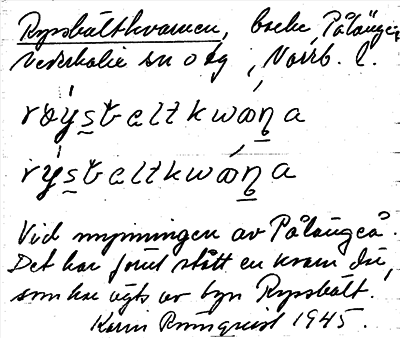 Rypsbältkvarnen, backe, Pålänge,
Nederkalix sn o lfg, Norrb. l.
røystb̶a̠ltkwɷ́n̠a
rýstb̶a̠ltkwɷ́n̠a
Vid mynningen av Pålängeå.
Det har förut stått en kvarn där,
som har ägts av byn Rypsbält.
Karin Rönnqvist 1945.